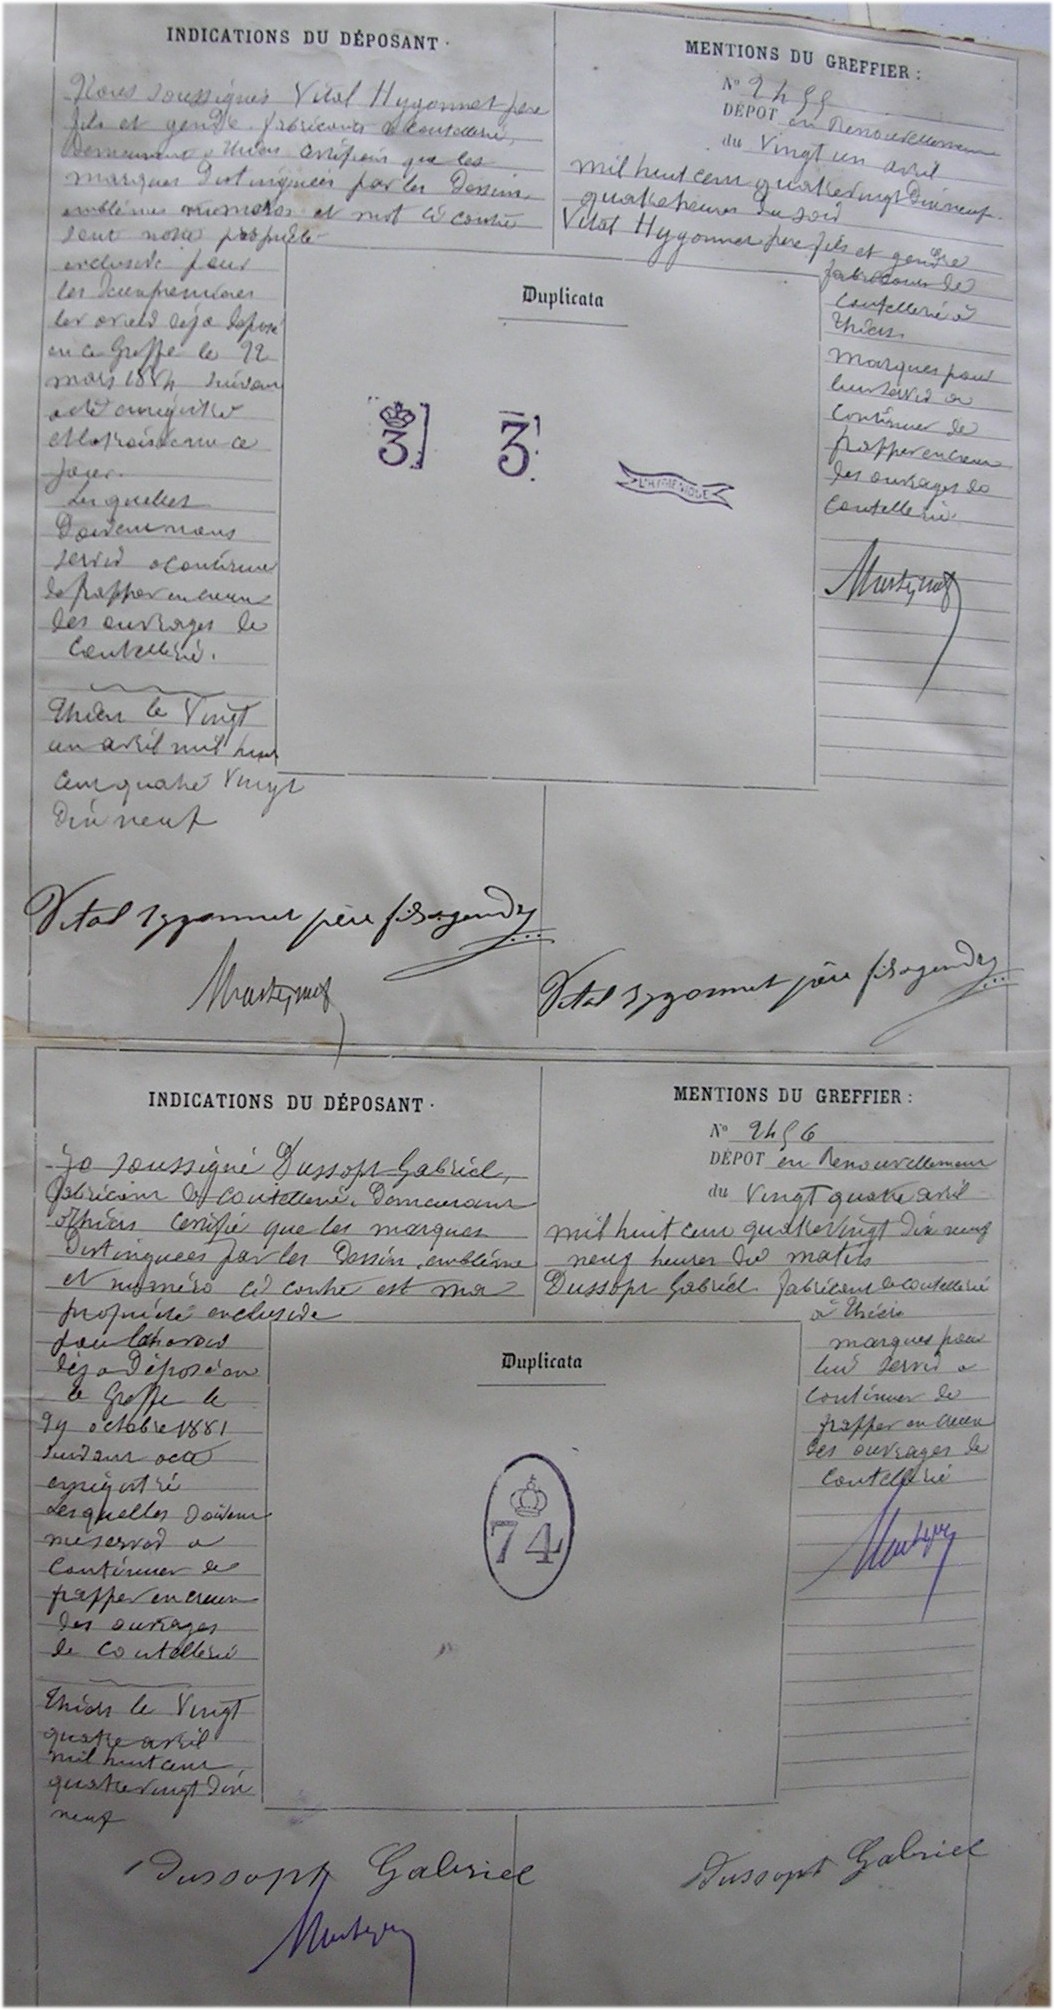 INDICATIONS DU DÉPOSANT.
Nous soussignés Vital Hygonnet père
fils et gendre fabricants de coutellerie,
demeurant à Thiers certifions que les
marques distinguées par les dessins,
emblèmes numéros et mot ci contre
sont notre propriété
exclusive pour
les deux premières
les avoir déjà déposé
au ce Greffe le 22
mars 1884 suivant
acte enregistré
et la troisième ce
jour.
Lesquelles
doivent nous
servir a continuer
de frapper en creux
des ouvrages de
Coutellerie.
Thiers le Vingt
un avril mil huit
cent quatre Vingt
Dix neuf
MENTIONS DU GREFFIER :
No 2455
DÉPOT en Renouvellement
du Vingt un avril
mil huit cent quatre vingt Dix neuf
quatre heures du soir
Vital Hygonnet père fils et gendre
fabricants de
Coutellerie à
Thiers
marques pour
leur servir a
continuer de
frapper en creux
des ouvrages de
Coutellerie
Duplicata
3
3
L'HYGIENIQUE
Vital Hygonnet père fils & gendre
Vital Hygonnet père fils & gendre
INDICATIONS DU DÉPOSANT.
Je soussigné Dussopt Gabriel,
fabricant de coutellerie, demeurant
à Thiers certifie que les marques
distinguées par les dessin, emblème
et numéro ci contre est ma
propriété exclusive
pour l'avoir
déjà déposé au
ce Greffe le
29 octobre 1881
suivant acte
enregistré
Lesquelles doivent
me servir a
continuer de
frapper en creux
des ouvrages
de coutellerie
Thiers le Vingt
quatre avril
mil huit cent
quatre vingt dix
neuf
MENTIONS DU GREFFIER :
No 2456
DÉPOT en Renouvellement
du Vingt quatre avril
mil huit cent quatre vingt dix neuf
neuf heures du matin
Dussopt Gabriel fabricant de coutellerie
à Thiers
marques pour
lui servir a
continuer de
frapper en creux
des ouvrages de
coutellerie
Duplicata
74
Dussopt Gabriel
Dussopt Gabriel